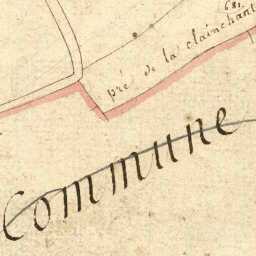 681
pré de la clainchant
Commune